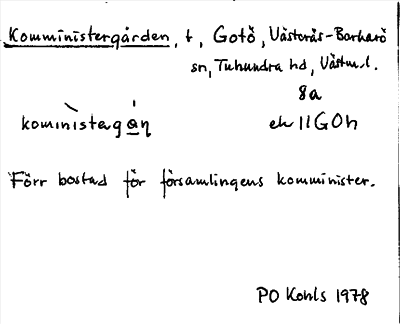 Komministergården, t, Gotö, Västerås-Barkarö
sn, Tuhundra hd, Västm.l.
8a
kominìstagạ́ṇ
ek 11G0h
Förr bostad för församlingens komminister.
PO Kohls 1978